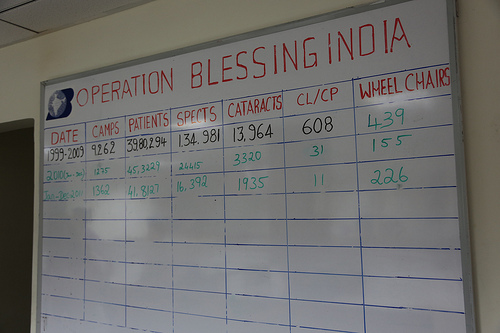 OPERATION BLESSING INDIA
DATE CAMPS PATIENTS SPECTS CATARACTS CL/CP WHEEL CHAIRS
1999-2009 9262 39,80,294 1,34,981 13,964 608 439
2010 1275 45,3229 26415 3320 31 155
1342 41,8127 16,392 1935 11 226